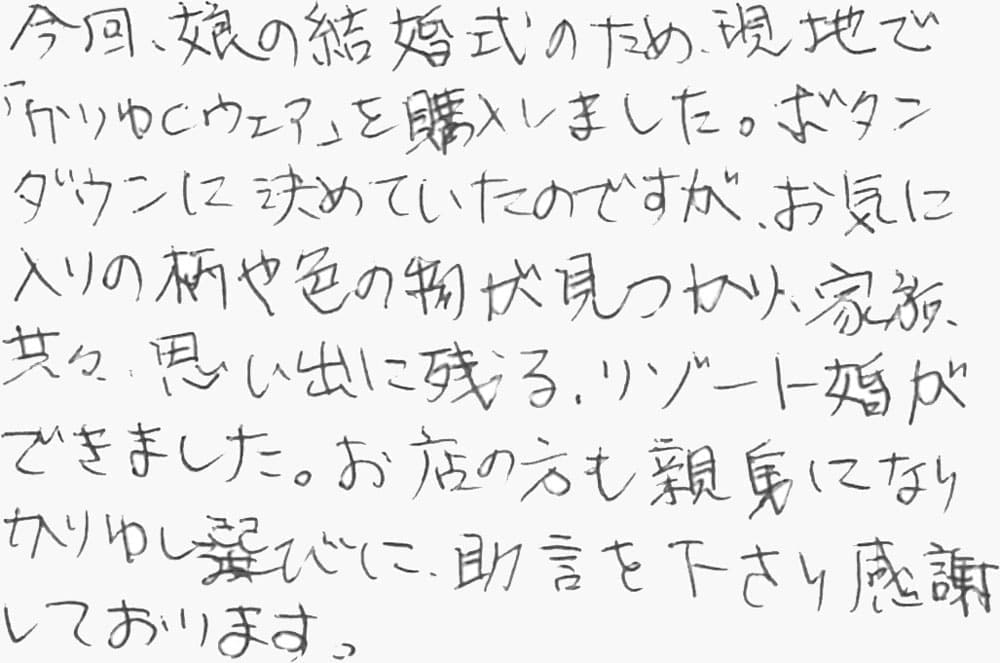 今回、娘の結婚式のため、現地で
「かりゆしウェア」を購入しました。ボタン
ダウンに決めていたのですが、お気に
入りの柄や色の物が見つかり、家族
共々、思い出に残る、リゾート婚が
できました。お店の方も親身になり
かりゆし選びに、助言を下さり感謝
しております。